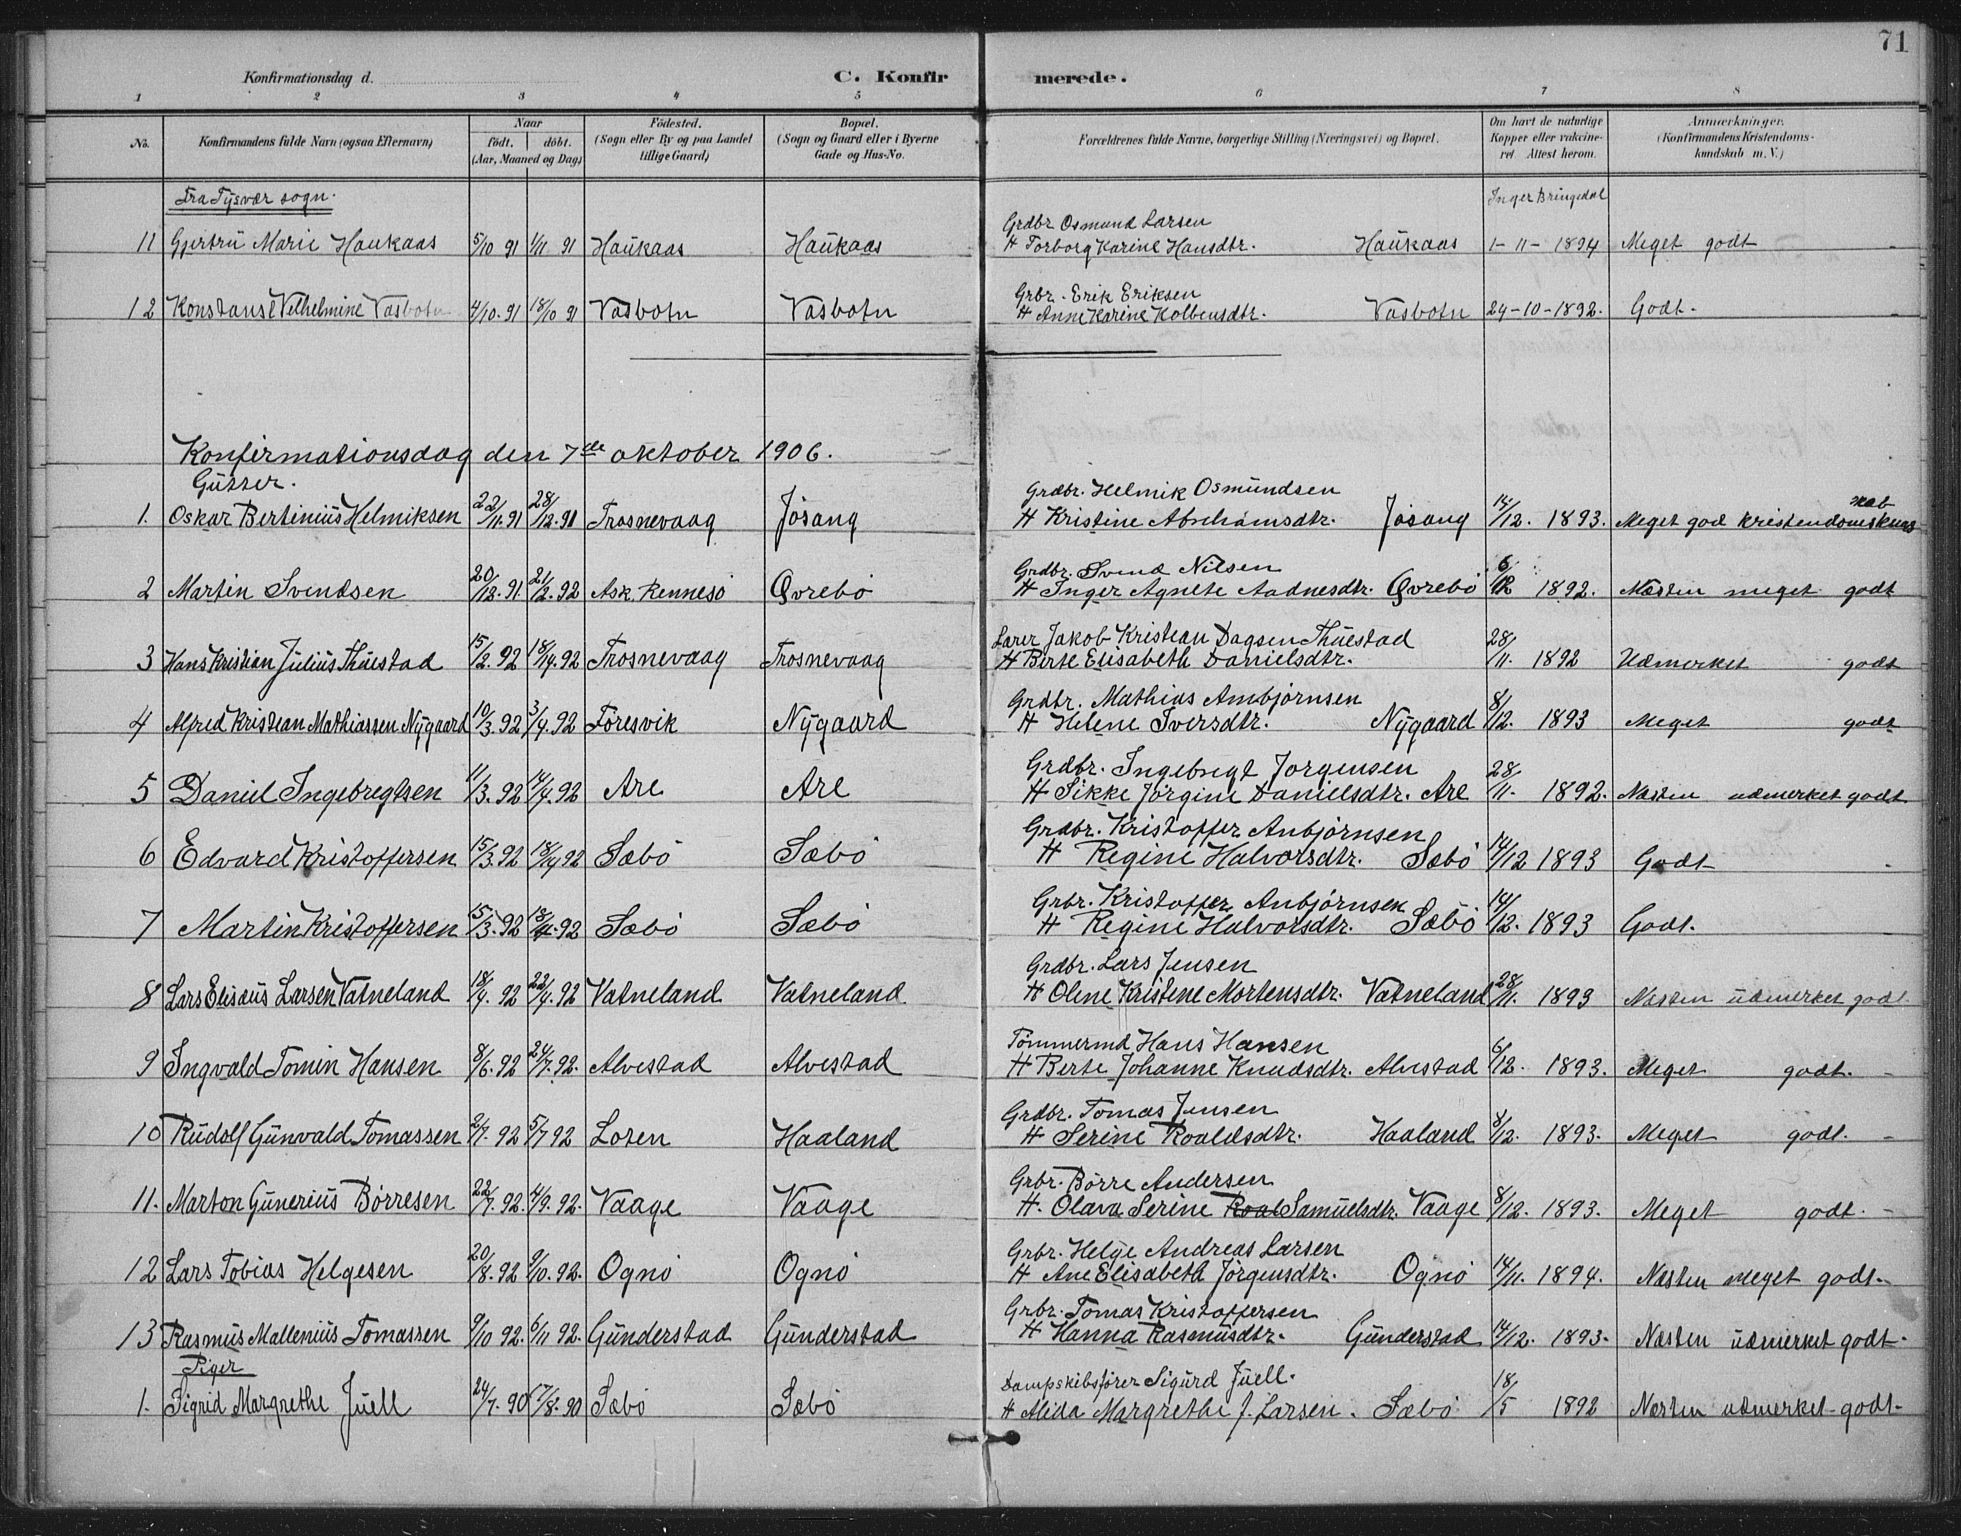 71
Konfirmationsdag d. C. Konfirmerede.
1 2 3 4 5 6 7 8
No. Konfirmandens fulde Navn (ogsaa Efternavn) Naar født. døbt. (Aar, Maaned og Dag) Fødested. (Sogn eller By og paa Landet tillige Gaard) Bopæl. (Sogn og Gaard eller i Byerne Gade og Hus-No. Forældrenes fulde Navne, borgerlige Stilling (Næringsvei) og Bopæl. Om havt de naturlige Kopper eller vakcineret Attest herom. Anmærkninger. (Konfirmandens Kristendomskundskab m. V.)
Fra Tysvær sogn. Inger Bringedal
Grdbr Osmund Larsen
11 Gjertru Marie Haukaas 5/10 91 1/11 91 Haukaas Haukaas H Torborg Karine Hansdtr. Haukaas 1-11-1894 Meget godt
Grbr. Erik Eriksen
12 Konstanse Vilhelmine Vasbotn 4/10. 91 18/10 91 Vasbotn Vasbotn H Anne Karine Kolbensdtr. Vasbotn 24-10-1892. Godt.
Konfirmationsdag den 7de oktober 1906.
Gutter.
Grdbr. Helmik Osmundsen
1. Oskar Bertinius Helmiksen 22/11. 91 28/12. 91 Trosnevaag Jøsang H Kristine Abrahamsdtr. Jøsang 14/12. 1893. Meget god kristendomskundskab
Grdbr. Svend Nilsen
2 Martin Svendsen 20/12. 91 21/2. 92 Ask, Rennesø Øvrebø H Inger Agnete Aadnesdtr. Øvrebø 6/12 1892. Næsten meget godt
Lærer Jakob Kristean Dagsen Thuestad
3 Hans Kristian Julius Thuestad 15/2. 92 18/4. 92 Trosnevaag Trosnevaag H Berte Elisabeth Danielsdtr. 28/11. 1892 Udmerket godt
Grdbr. Mathias Ambjørnsen
4 Alfred Kristean Mathiassen Nygaard 10/3. 92 3/4. 92 Føresvik Nygaard H Helene Iversdtr. Nygaard 8/12. 1893 Meget godt
Grdbr. Ingebregt Jørgensen
5 Daniel Ingebregtsen 11/3. 92 14/4. 92 Are Are H Sikke Jørgine Danielsdtr. Are 28/11. 1892. Næsten udmerket godt
Grdbr. Kristoffer Anbjørnsen
6 Edvard Kristoffersen 15/3. 92 18/4 92 Sæbø Sæbø H Regine Halvorsdtr. Sæbø 14/12 1893 Godt
Grbr. Kristoffer Anbjørnsen
7 Martin Kristoffersen 15/3. 92 18/4. 92 Sæbø Sæbø H Regine Halvorsdtr. Sæbø 14/12. 1893 Godt.
Grdbr. Lars Jensen
8 Lars Elisæus Larsen Vatneland 18/4. 92 22/4. 92 Vatneland Vatneland H Oline Kristine Mortensdtr. Vatneland 28/11. 1893 Næsten udmerket godt.
Tømmermd Hans Hansen
9 Ingvald Tomin Hansen 8/6. 92 24/7. 92. Alvestad Alvestad H Berte Johanne Knudsdtr. Alvestad 6/12. 1893. Meget godt.
Grdbr. Tomas Jensen
10 Rudolf Gunvald Tomassen 2/7. 92 5/7 92 Loten Haaland H Serine Roaldsdtr. Haaland 8/12. 1893. Meget godt.
Grbr. Børre Andersen
11. Marton Gunerius Børresen 22/7. 92. 4/9. 92. Vaage Vaage H. Olava Serine Roal Samuelsdtr. Vaage 8/12. 1893. Meget godt.
Grbr. Helge Andreas Larsen
12 Lars Tobias Helgesen 20/8. 92 9/10. 92. Ognø Ognø H Ane Elisabeth Jørgensdtr. Ognø 14/11. 1894. Næsten meget godt.
Grbr. Tomas Kristoffersen
13 Rasmus Mallenius Tomassen 9/10 92. 6/11 92. Gunderstad Gunderstad H Hanna Rasmusdtr. Gunderstad 14/12. 1893. Næsten udmerket godt.
Piger
Dampskibsfører Sigurd Juell.
1. Sigrid Margrethe Juell 24/7. 90 17/8. 90 Sæbø Sæbø H Alida Margrethe J. Larsen. Sæbø 18/5 1892 Næsten udmerket godt.